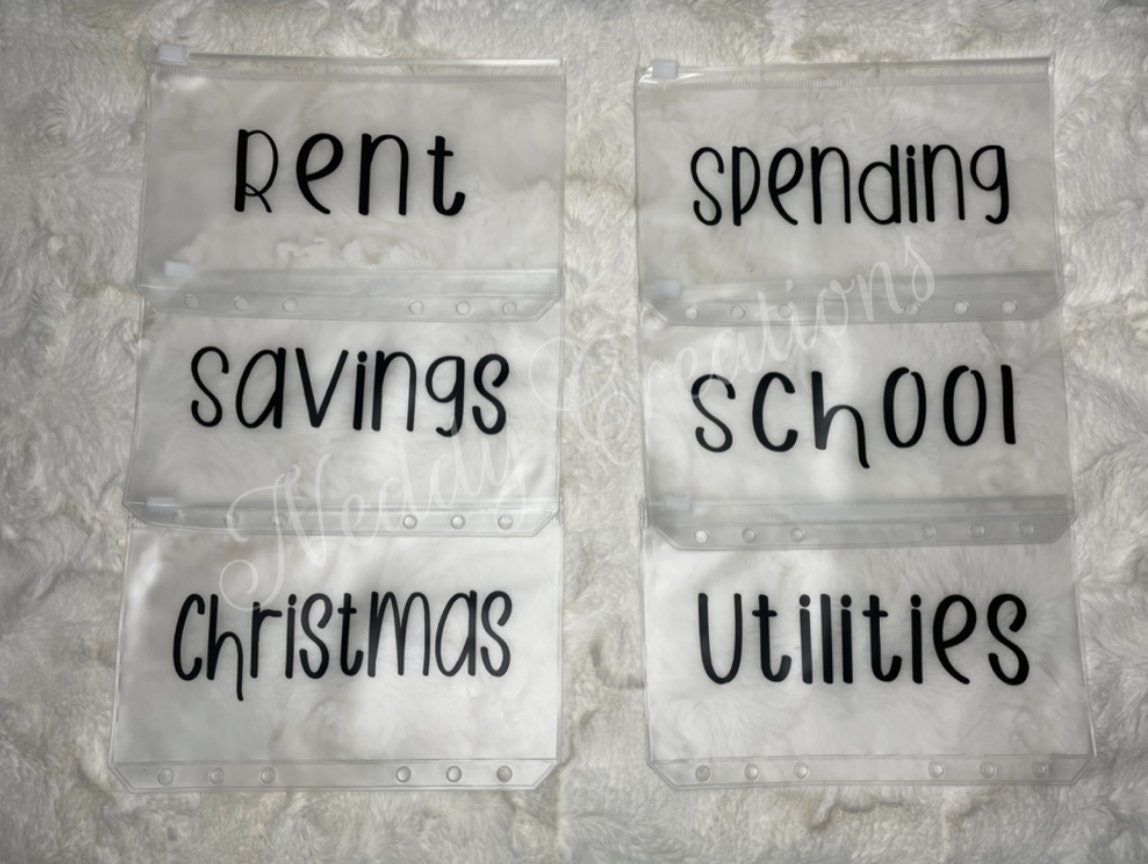 Rent
Spending
Savings
School
Christmas
Utilities
Neddy Creations